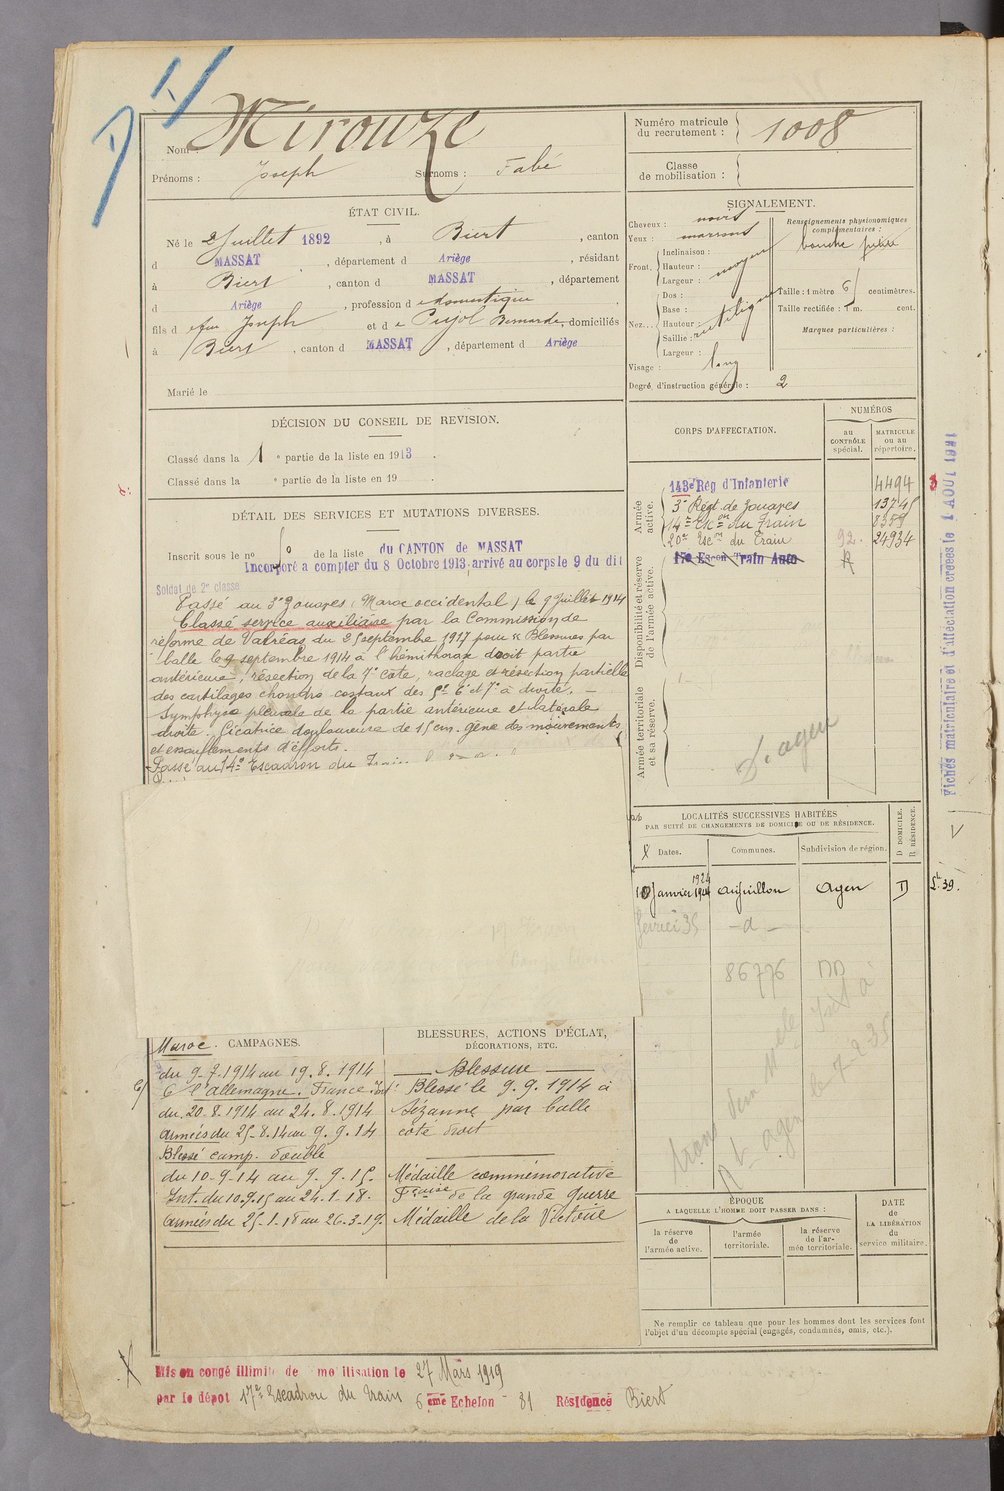 Nom : Mirouze
Prénoms : Joseph Surnoms : Fabé
Numéro matricule du recrutement : 1008
Classe de mobilisation :
ÉTAT CIVIL.
Né le 2 Juillet 1892, à Biert, canton
d MASSAT, département d Ariège, résidant
à Biert, canton d MASSAT, département
d Ariège, profession d domestique
fils d e feu Joseph et d e Pujol Bernarde, domiciliés
à Biert, canton d MASSAT, département d Ariège
Marié le
SIGNALEMENT.
Cheveux : noirs
Yeux : marrons
Front. Inclinaison :
Hauteur : moyen
Largeur :
Nez... Dos :
Base :
Hauteur : rectilig
Saillie :
Largeur :
Visage : long
Degré d'instruction générale : 2
Renseignements physionomiques complémentaires :
bouche petite
Taille : 1 mètre 61 centimètres.
Taille rectifiée : 1 m. cent.
Marques particulières :
DÉCISION DU CONSEIL DE REVISION.
Classé dans la 1e partie de la liste en 1913.
Classé dans la e partie de la liste en 19
DÉTAIL DES SERVICES ET MUTATIONS DIVERSES.
Inscrit sous le no de la liste du CANTON de MASSAT
Incorporé a compter du 8 Octobre 1913, arrivé au corps le 9 du dit
Soldat de 2e classe
Passé au 3e Zouaves (Maroc occidental) le 9 Juillet 1914
Classé service auxiliaire par la Commission de
réforme de Valréas du 25 septembre 1917 pour "Blessures par
balle le 9 septembre 1914 à l'hémithorax droit partie
antérieure, résection de la 7e côte, raclage et résection partielle
des cartilages chondro costaux des 5e 6e et 7e à droite. -
Symphyse pleurale de la partie antérieure et latérale
droite. Cicatrice douloureuse de 15 cm. gêne des mouvements
et essouflements d'efforts.
Passé au 14e Escadron du Train
CORPS D'AFFECTATION.
NUMÉROS
au CONTRÔLE spécial.
MATRICULE ou au répertoire.
Armée active.
143e Rég d'Infanterie 4494
3e Régt de Zouaves 13745
14e Escon du Train 8355
20e Escon du Train 92. 24934
Disponibilité et réserve de l'armée active.
17e Escon Train Auto R
Armée territoriale et sa réserve.
D. agen
Fiches matriculaire et d'affectation créées le 1 AOUT 1921
LOCALITÉS SUCCESSIVES HABITÉES
PAR SUITE DE CHANGEMENTS DE DOMICILE OU DE RÉSIDENCE.
Dates. Communes. Subdivision de région. D DOMICILE. R RÉSIDENCE.
10 Janvier 1924 Aiguillon Agen D
fevrier 35 - d -
86776 DD
CAMPAGNES.
Maroc.
du 9-7-1914 au 19.8.1914
C/ l'allemagne. France. Int:
du 20-8-1914 au 24.8.1914
armées du 25-8.14 au 9.9.14
Blessé camp. double
du 10-9-14 au 9-9-15.
Int. du 10.9.15 au 24.1.18.
armées du 25-1-18 au 26-3-19.
BLESSURES, ACTIONS D'ÉCLAT,
DÉCORATIONS, ETC.
Blessure
Blessé le 9.9.1914 à
Sézanne par balle
côté droit
Médaille commémorative
Fçaise de la grande guerre
Médaille de la Victoire
ÉPOQUE
A LAQUELLE L'HOMME DOIT PASSER DANS :
la réserve de l'armée active.
l'armée territoriale.
la réserve de l'armée territoriale.
DATE de LA LIBÉRATION du service militaire.
Ne remplir ce tableau que pour les hommes dont les services font
l'objet d'un décompte spécial (engagés, condamnés, omis, etc.).
Mis en congé illimité de mobilisation le 27 Mars 1919
par le dépot 17e Escadron du Train 6 ème Echelon - 81 Résidence Biert